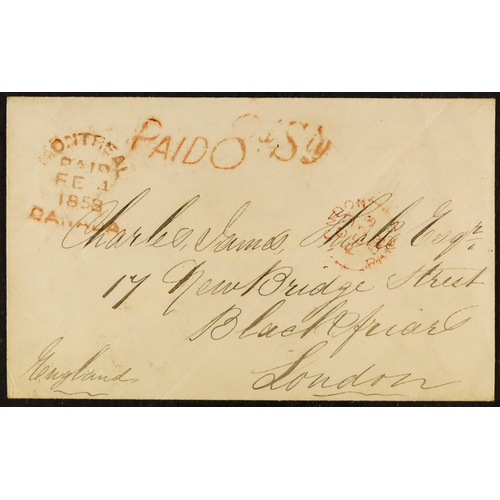 MONTREAL
PAID
FE 1
1858
CANADA
PAID 6d Stg
LONDON
PAID
Charles James Esqr.
17 New Bridge Street
Blackfriars
London
England